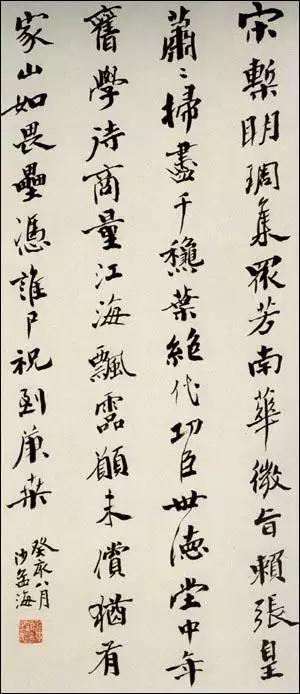 宋槧明琱集眾芳南華微旨賴張皇
蕭〻掃盡千龝葉絕代功臣世德堂中年
舊學待商量江海飄霝願未償猶有
家山如畏壘憑誰尸祝到庚桑
癸亥八月
沙孟海